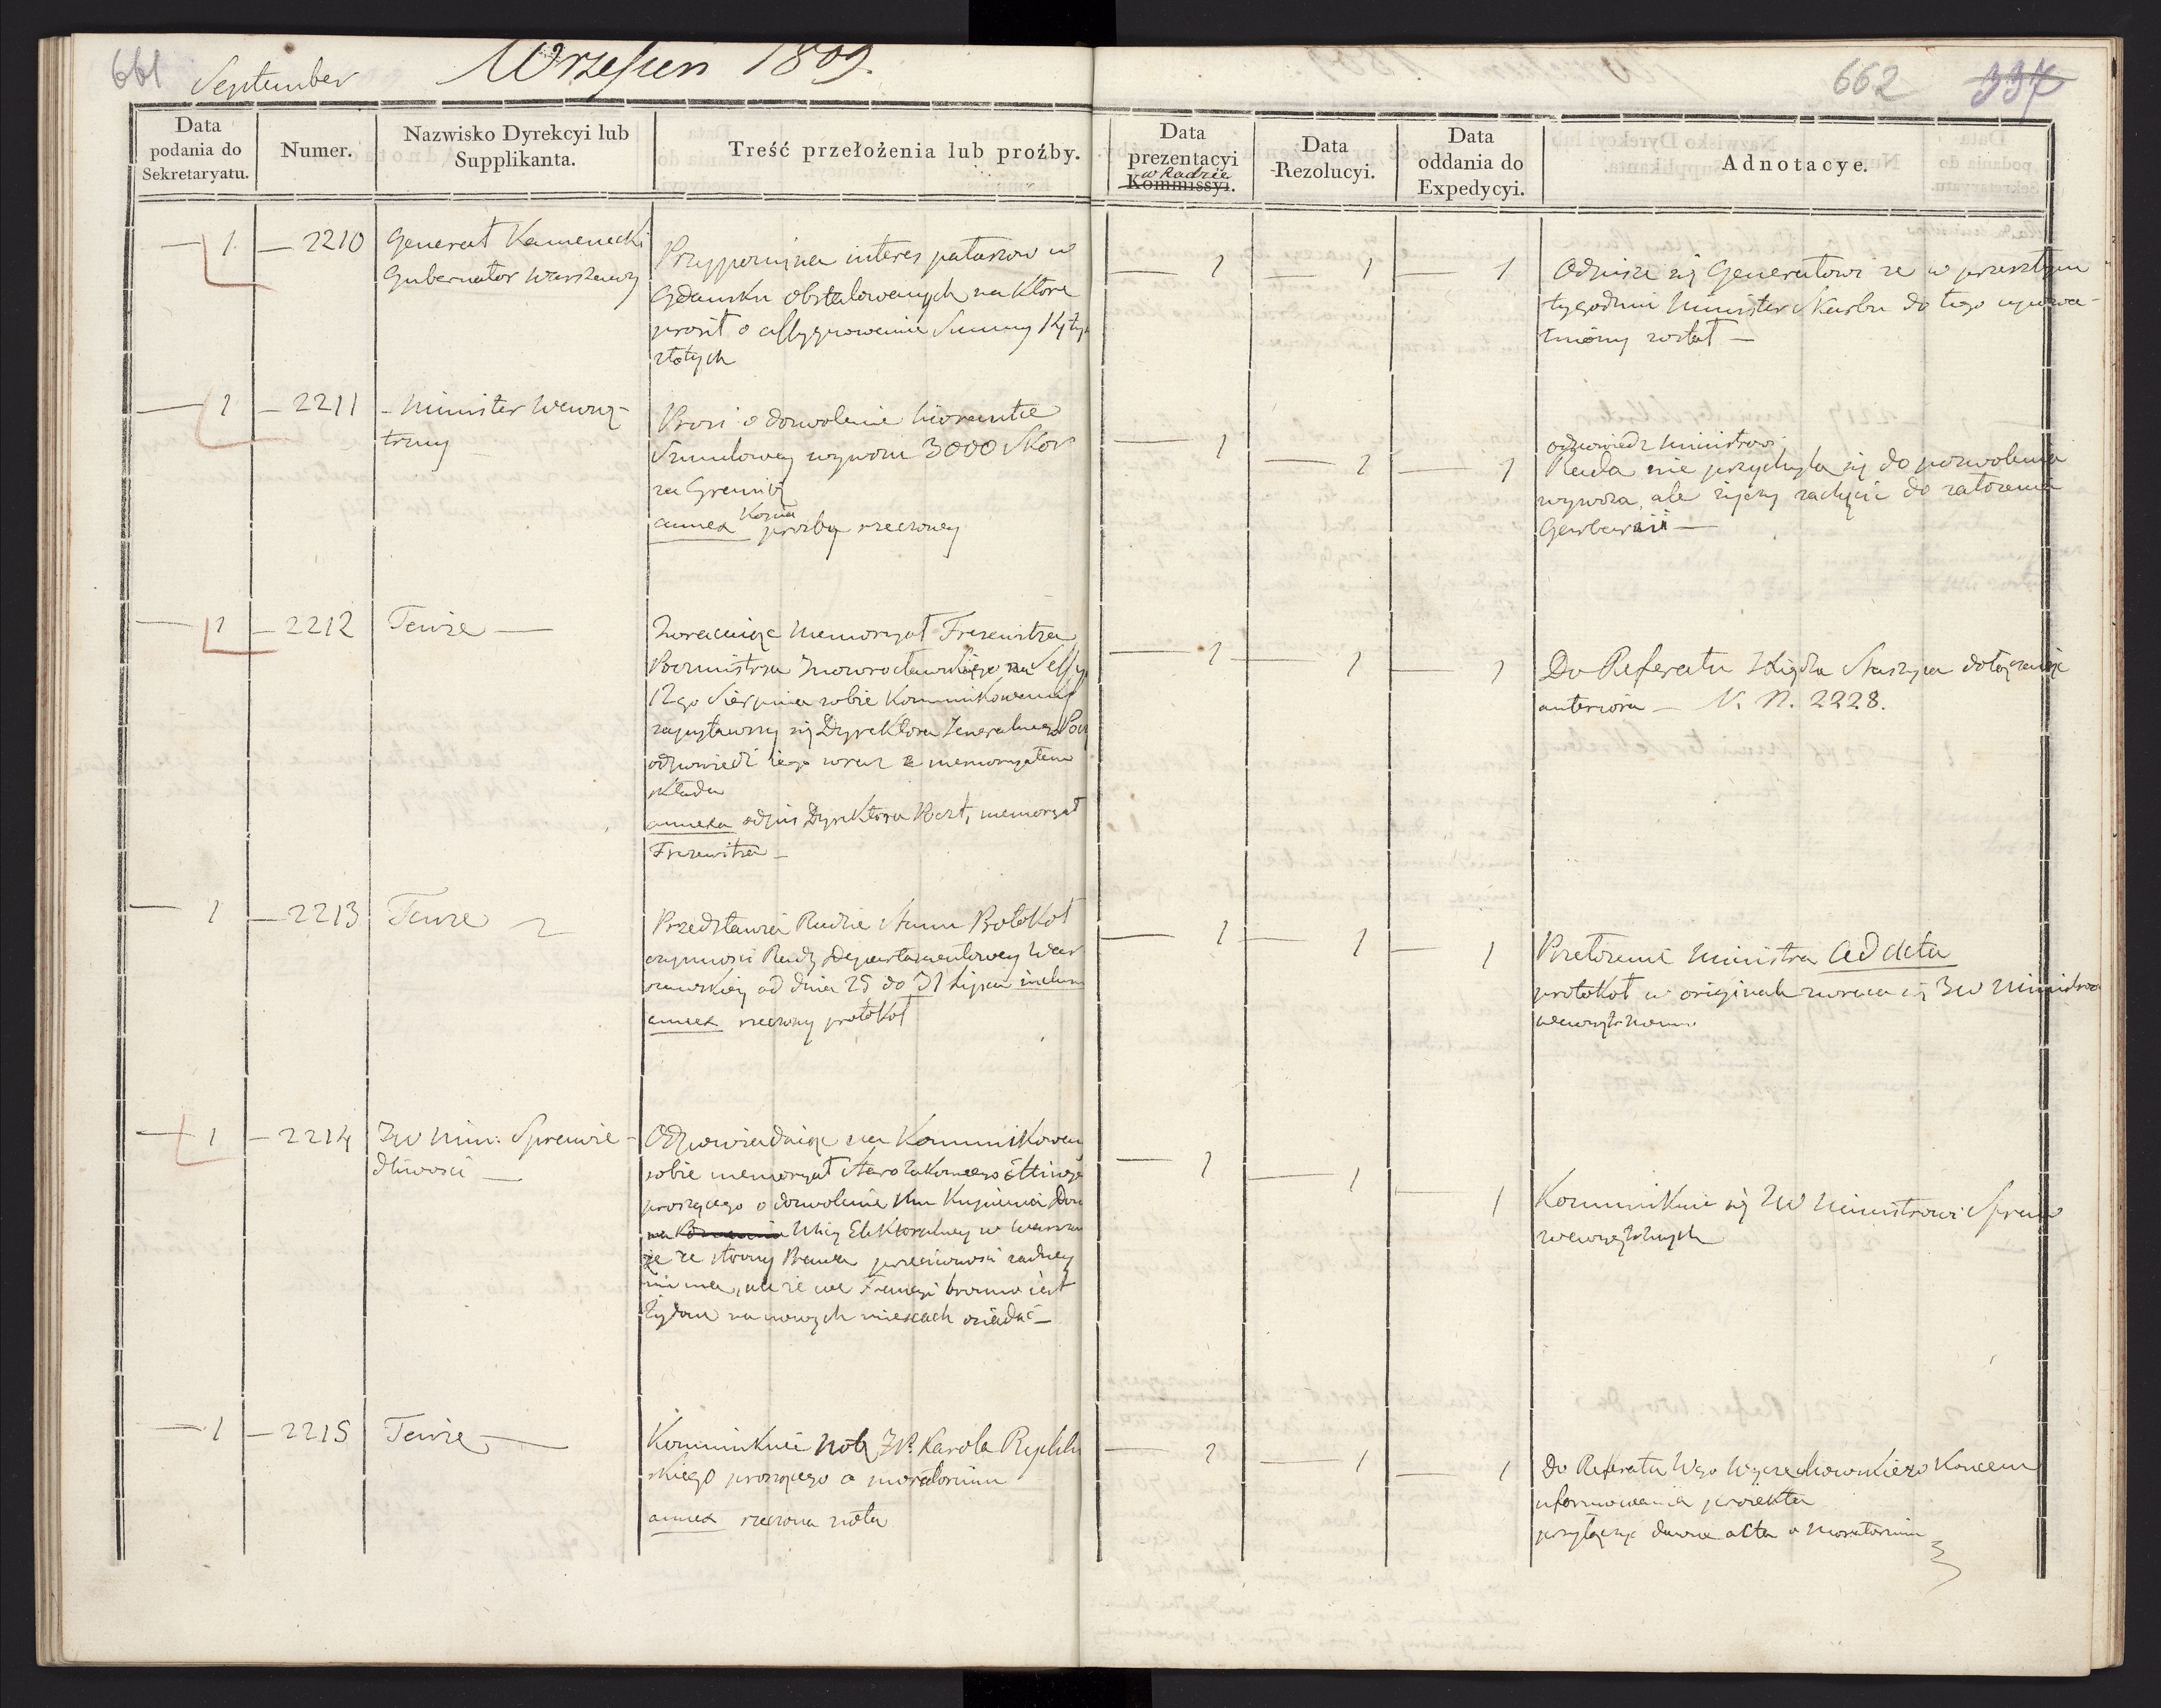 661 September Wrzesień 1809.
662 337
Data podania do Sekretaryatu.
Numer.
Nazwisko Dyrekcyi lub Supplikanta.
Treść przełożenia lub proźby.
Data prezentacyi w Radzie Kommissyi.
Data Rezolucyi.
Data oddania do Expedycyi.
Adnotacye.
— 1 — 2210 Generał Kamienecki
Gubernator Warszawy
Przypomina interes pałaszow w
Gdansku obstalowanych na które
prosił o assygnowanie Summy 14 tys
złotych
— 1 — 1 — 1
Odpisze się Generałowi ze w przeszłym
tygodniu Minister Skarbu do tego upowa-
zniony został —
— 1 — 2211 - Minister Wewnę-
trzny
Prosi o dozwolenie
Szmulowey wywozu 3000 Skor
za Granicę
annex kopia prozby rzeczoney
— 1 — 1 — 1
odpowiedz Ministrowi
Rada nie przychyla się do pozwolenia
wywozu, ale zyczy zachęcic do założenia
Garbarnii —
— 1 — 2212 Tenże —
Zwracaiąc Memoryał
Pocmistrza Inowrocławskiego na Sessyi
12go Sierpnia sobie kommunikowany
zapytawszy się Dyrektora Generalnego Poczt
odpowiedz iego wraz z memoryałem
składa
annexa odpis Dyrektora Poczt, memoryał
— 1 — 1 — 1
Do Referatu Xiędza Staszyca dołączaiąc
anteriora — N. N. 2228.
— 1 — 2213 Tenze
Przedstawia Radzie Stanu Protokoł
czynnosci Rady Departamentowey War-
szawskiey od dnia 25 do 31 Lipca inclus
annex rzeczony protokoł
— 1 — 1 — 1
Przełożenie Ministra ad acta
protokoł w originale zwraca się JW Ministrowi
wewnętrznemu
— 1 — 2214 JW Min: Sprawie-
dliwosci —
Odpowiadaiąc na Kommunikowany
sobie memoryał Starozakonnego
proszącego o dozwolenie Kupienia Domu
na Ulicy Elektoralney w Warszawie
że ze strony Prawa przeciwnosci zadney
nie ma, ale że we Francyi bronno iest
Żydom na nowych mieścach osiadać —
— 1 — 1 — 1
Kommunikuie się JW Ministrowi Spraw
wewnętrznych
— 1 — 2215 Tenże —
Kommunikuie notę JP. Karola
skiego proszącego o moratorium
annex rzeczona nota
— 1 — 1 — 1
Do Referatu Wgo Węgrzechowskiego koncem
uformowania proiektu
przyłączyć dawne acta o moratorium